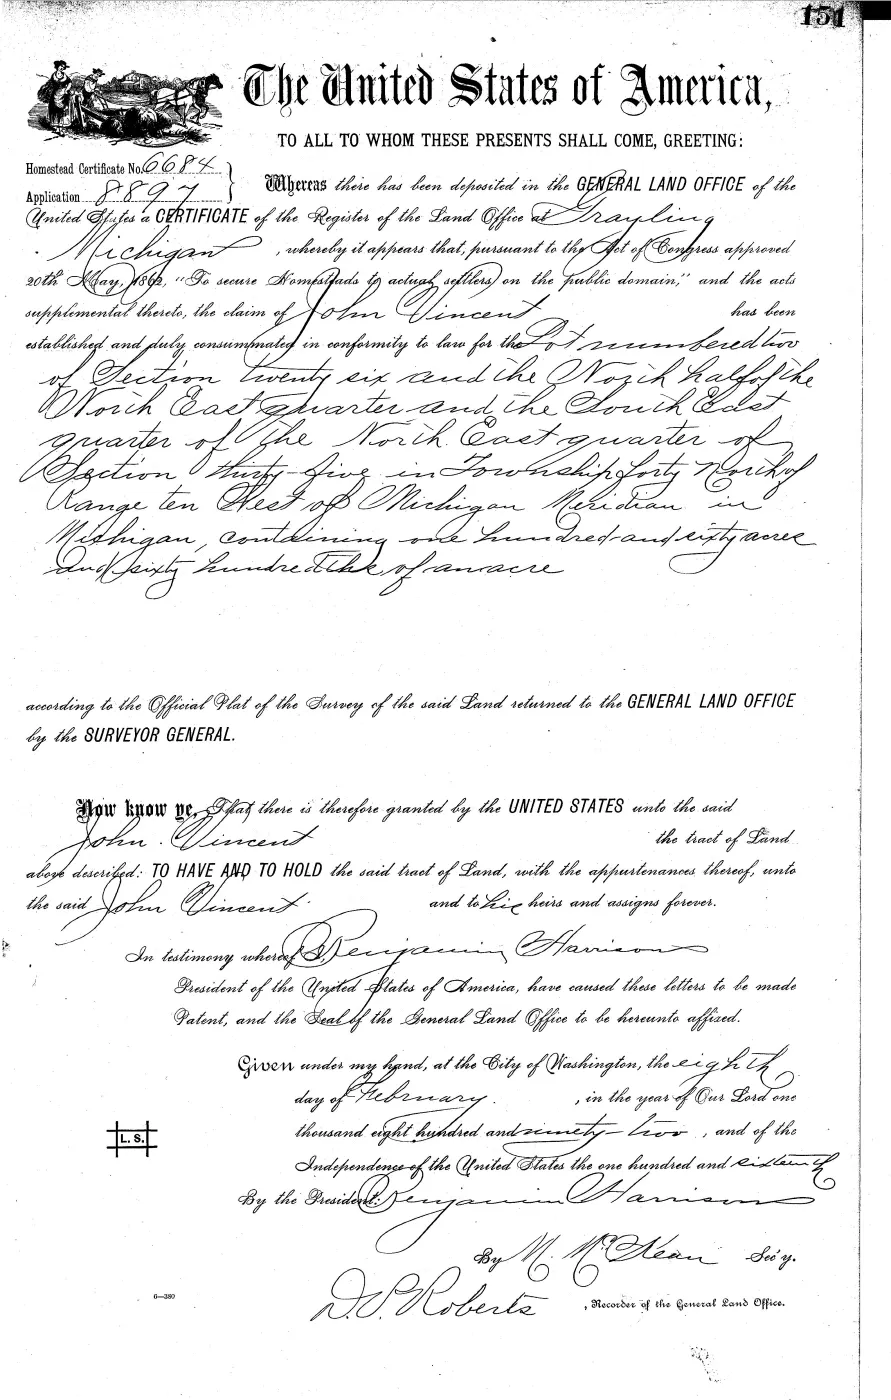 151
The United States of America,
TO ALL TO WHOM THESE PRESENTS SHALL COME, GREETING:
Homestead Certificate No. 6684
Application 8897
Whereas there has been deposited in the GENERAL LAND OFFICE of the
United States a CERTIFICATE of the Register of the Land Office at Grayling
Michigan, whereby it appears that, pursuant to the Act of Congress approved
20th May, 1862, "To secure Homesteads to actual settlers on the public domain," and the acts
supplemental thereto, the claim of John Vincent has been
established and duly consummated in conformity to law for the Lot numbered two
of Section twenty six and the North half of the
North East quarter and the South East
quarter of the North East quarter of
Section thirty-five in Township forty North of
Range ten West of Michigan Meridian in
Michigan, containing one hundred and sixty acres
and sixty hundredths of an acre
according to the Official Plat of the Survey of the said Land returned to the GENERAL LAND OFFICE
by the SURVEYOR GENERAL.
Now know ye, That there is therefore granted by the UNITED STATES unto the said
John Vincent the tract of Land
above described: TO HAVE AND TO HOLD the said tract of Land, with the appurtenances thereof, unto
the said John Vincent and to his heirs and assigns forever.
In testimony whereof I, Benjamin Harrison
President of the United States of America, have caused these letters to be made
Patent, and the Seal of the General Land Office to be hereunto affixed.
Given under my hand, at the City of Washington, the eighth
day of February, in the year of Our Lord one
thousand eight hundred and ninety-two, and of the
Independence of the United States the one hundred and sixteenth
L. S.
By the President: Benjamin Harrison
By M. McKean Sec'y.
6—380
D. P. Roberts, Recorder of the General Land Office.